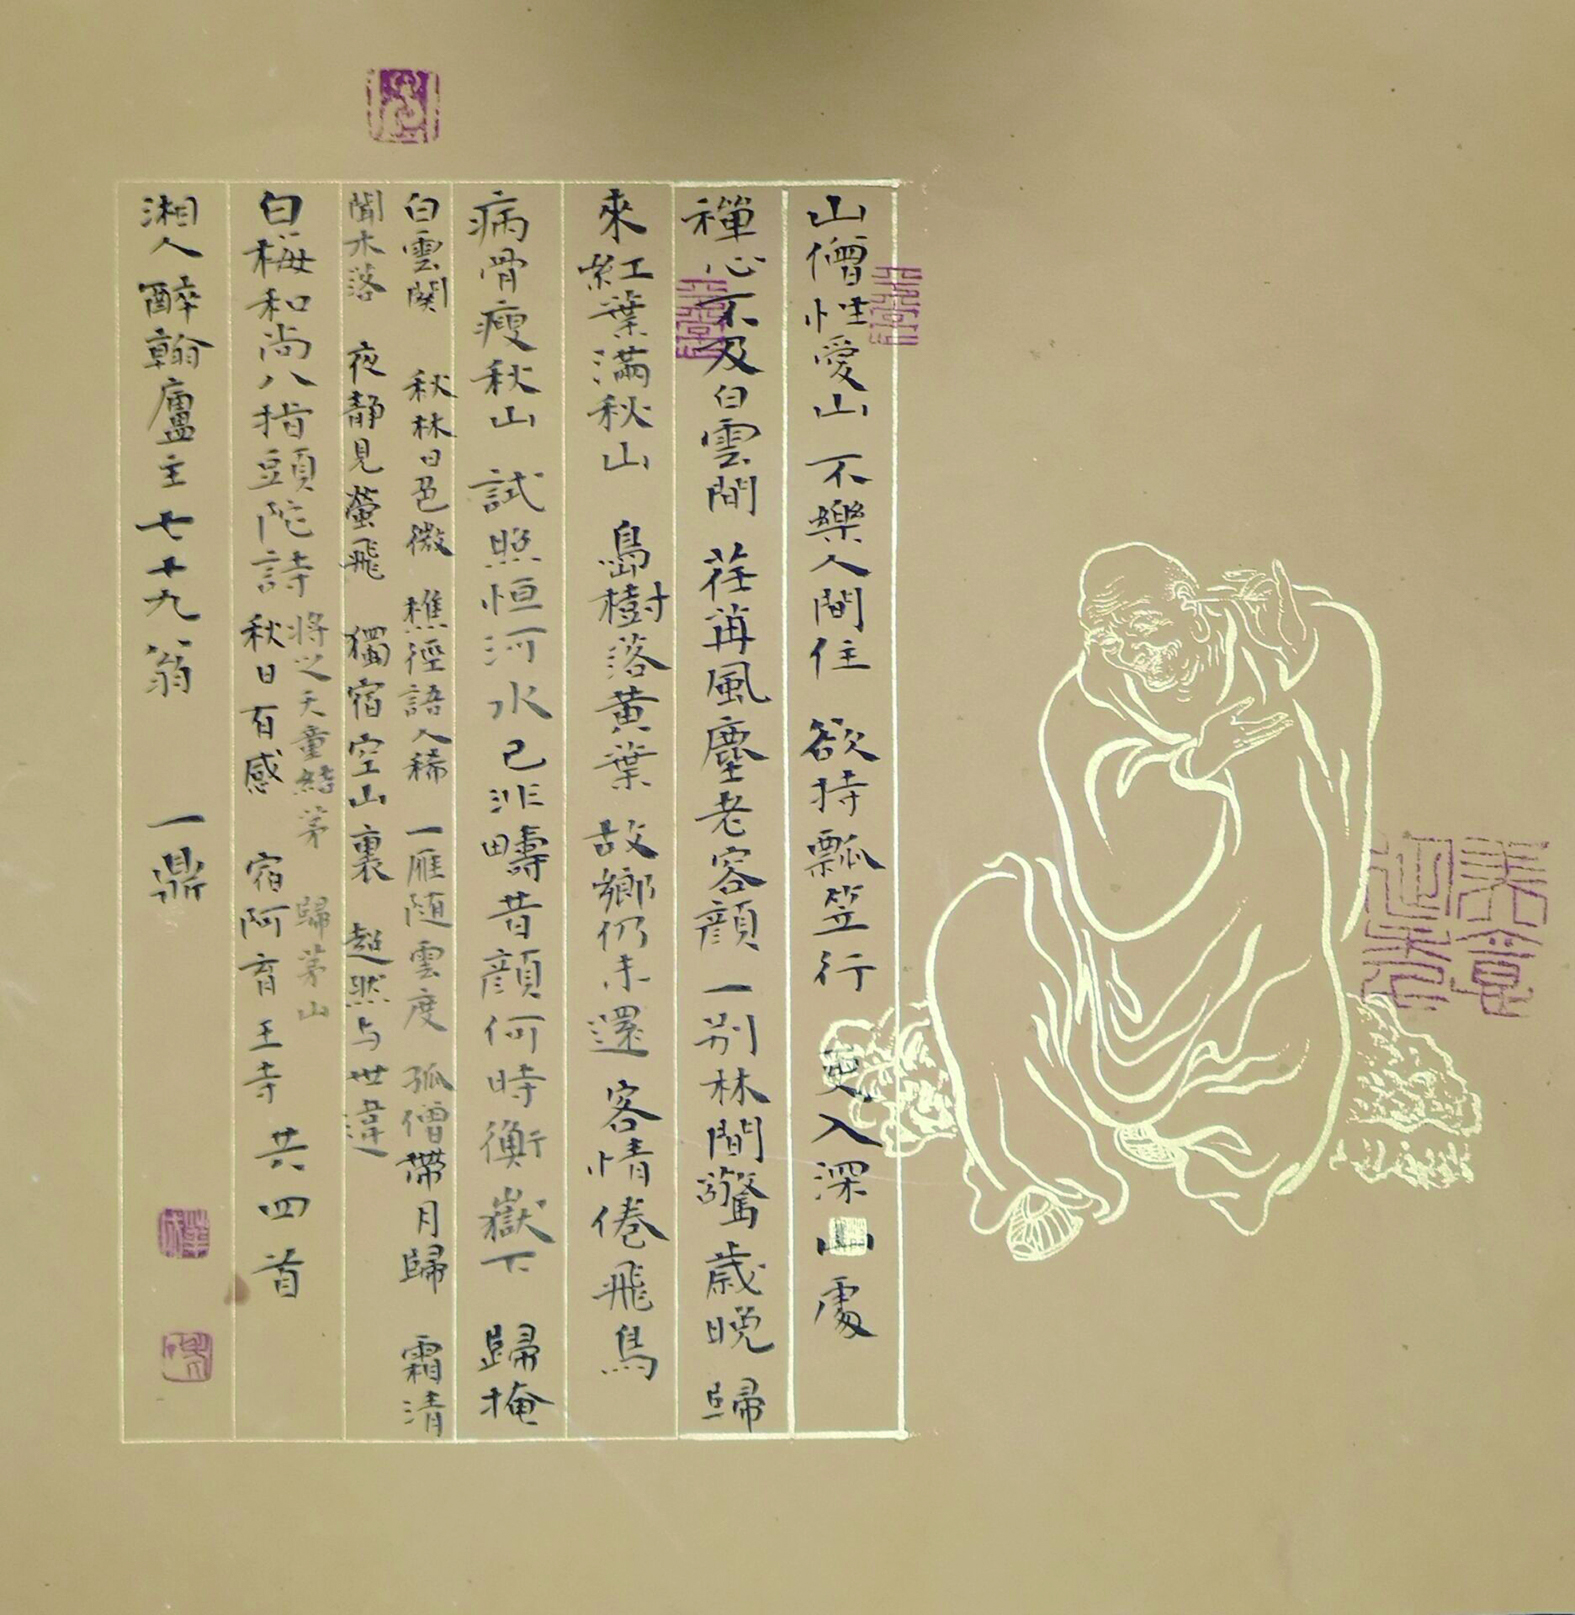 山僧性愛山 不樂人間住 欲持瓢笠行 更入深山處
禪心不及白雲間 荏苒風塵老客顔 一別林間驚歲晚 歸
來紅葉滿秋山 島樹落黄葉 故鄉仍未還 客情倦飛鳥
病骨瘦秋山 試照恒河水 已非疇昔顔 何時衡嶽下 歸掩
白雲関 秋林日色微 樵徑語人稀 一雁随雲度 孤僧帶月歸 霜清
聞木落 夜静見螢飛 獨宿空山裏 超然与世違
白梅和尚八指頭陀詩
將之天童結茅 歸茅山
秋日有感 宿阿育王寺 共四首
湘人醉翰廬主七十九翁 一鼎